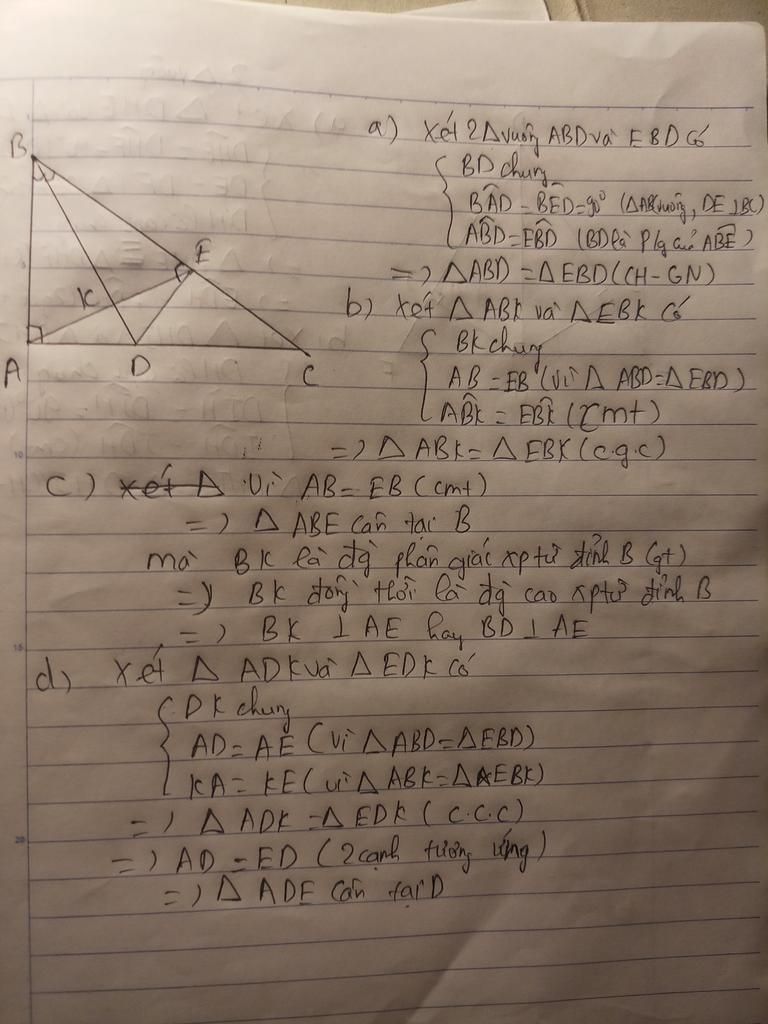 a) Xét 2Δ vuông ABD và EBD có
B
BD chung
BÂD = BÊD = 90° (ΔABC vuông, DE ⊥ BC)
AB̂D = EB̂D (BD là p/g của AB̂E)
E
=) ΔABD = ΔEBD (CH-GN)
K
b) Xét Δ ABK và Δ EBK có
BK chung
A D C
AB = EB (vì Δ ABD = Δ EBD)
AB̂K = EB̂K (cmt)
=) Δ ABK = Δ EBK (c.g.c)
c) xét Δ Vì AB = EB (cmt)
=) Δ ABE cân tại B
mà BK là đg phân giác xp từ đỉnh B (gt)
=) BK đồng thời là đg cao xp từ đỉnh B
=) BK ⊥ AE hay BD ⊥ AE
d) Xét Δ ADK và Δ EDK có
DK chung
AD = AE (Vì Δ ABD = Δ EBD)
KA = KE (vì Δ ABK = Δ EBK)
=) Δ ADK = Δ EDK (c.c.c)
=) AD = ED (2 cạnh tương ứng)
=) Δ ADE cân tại D